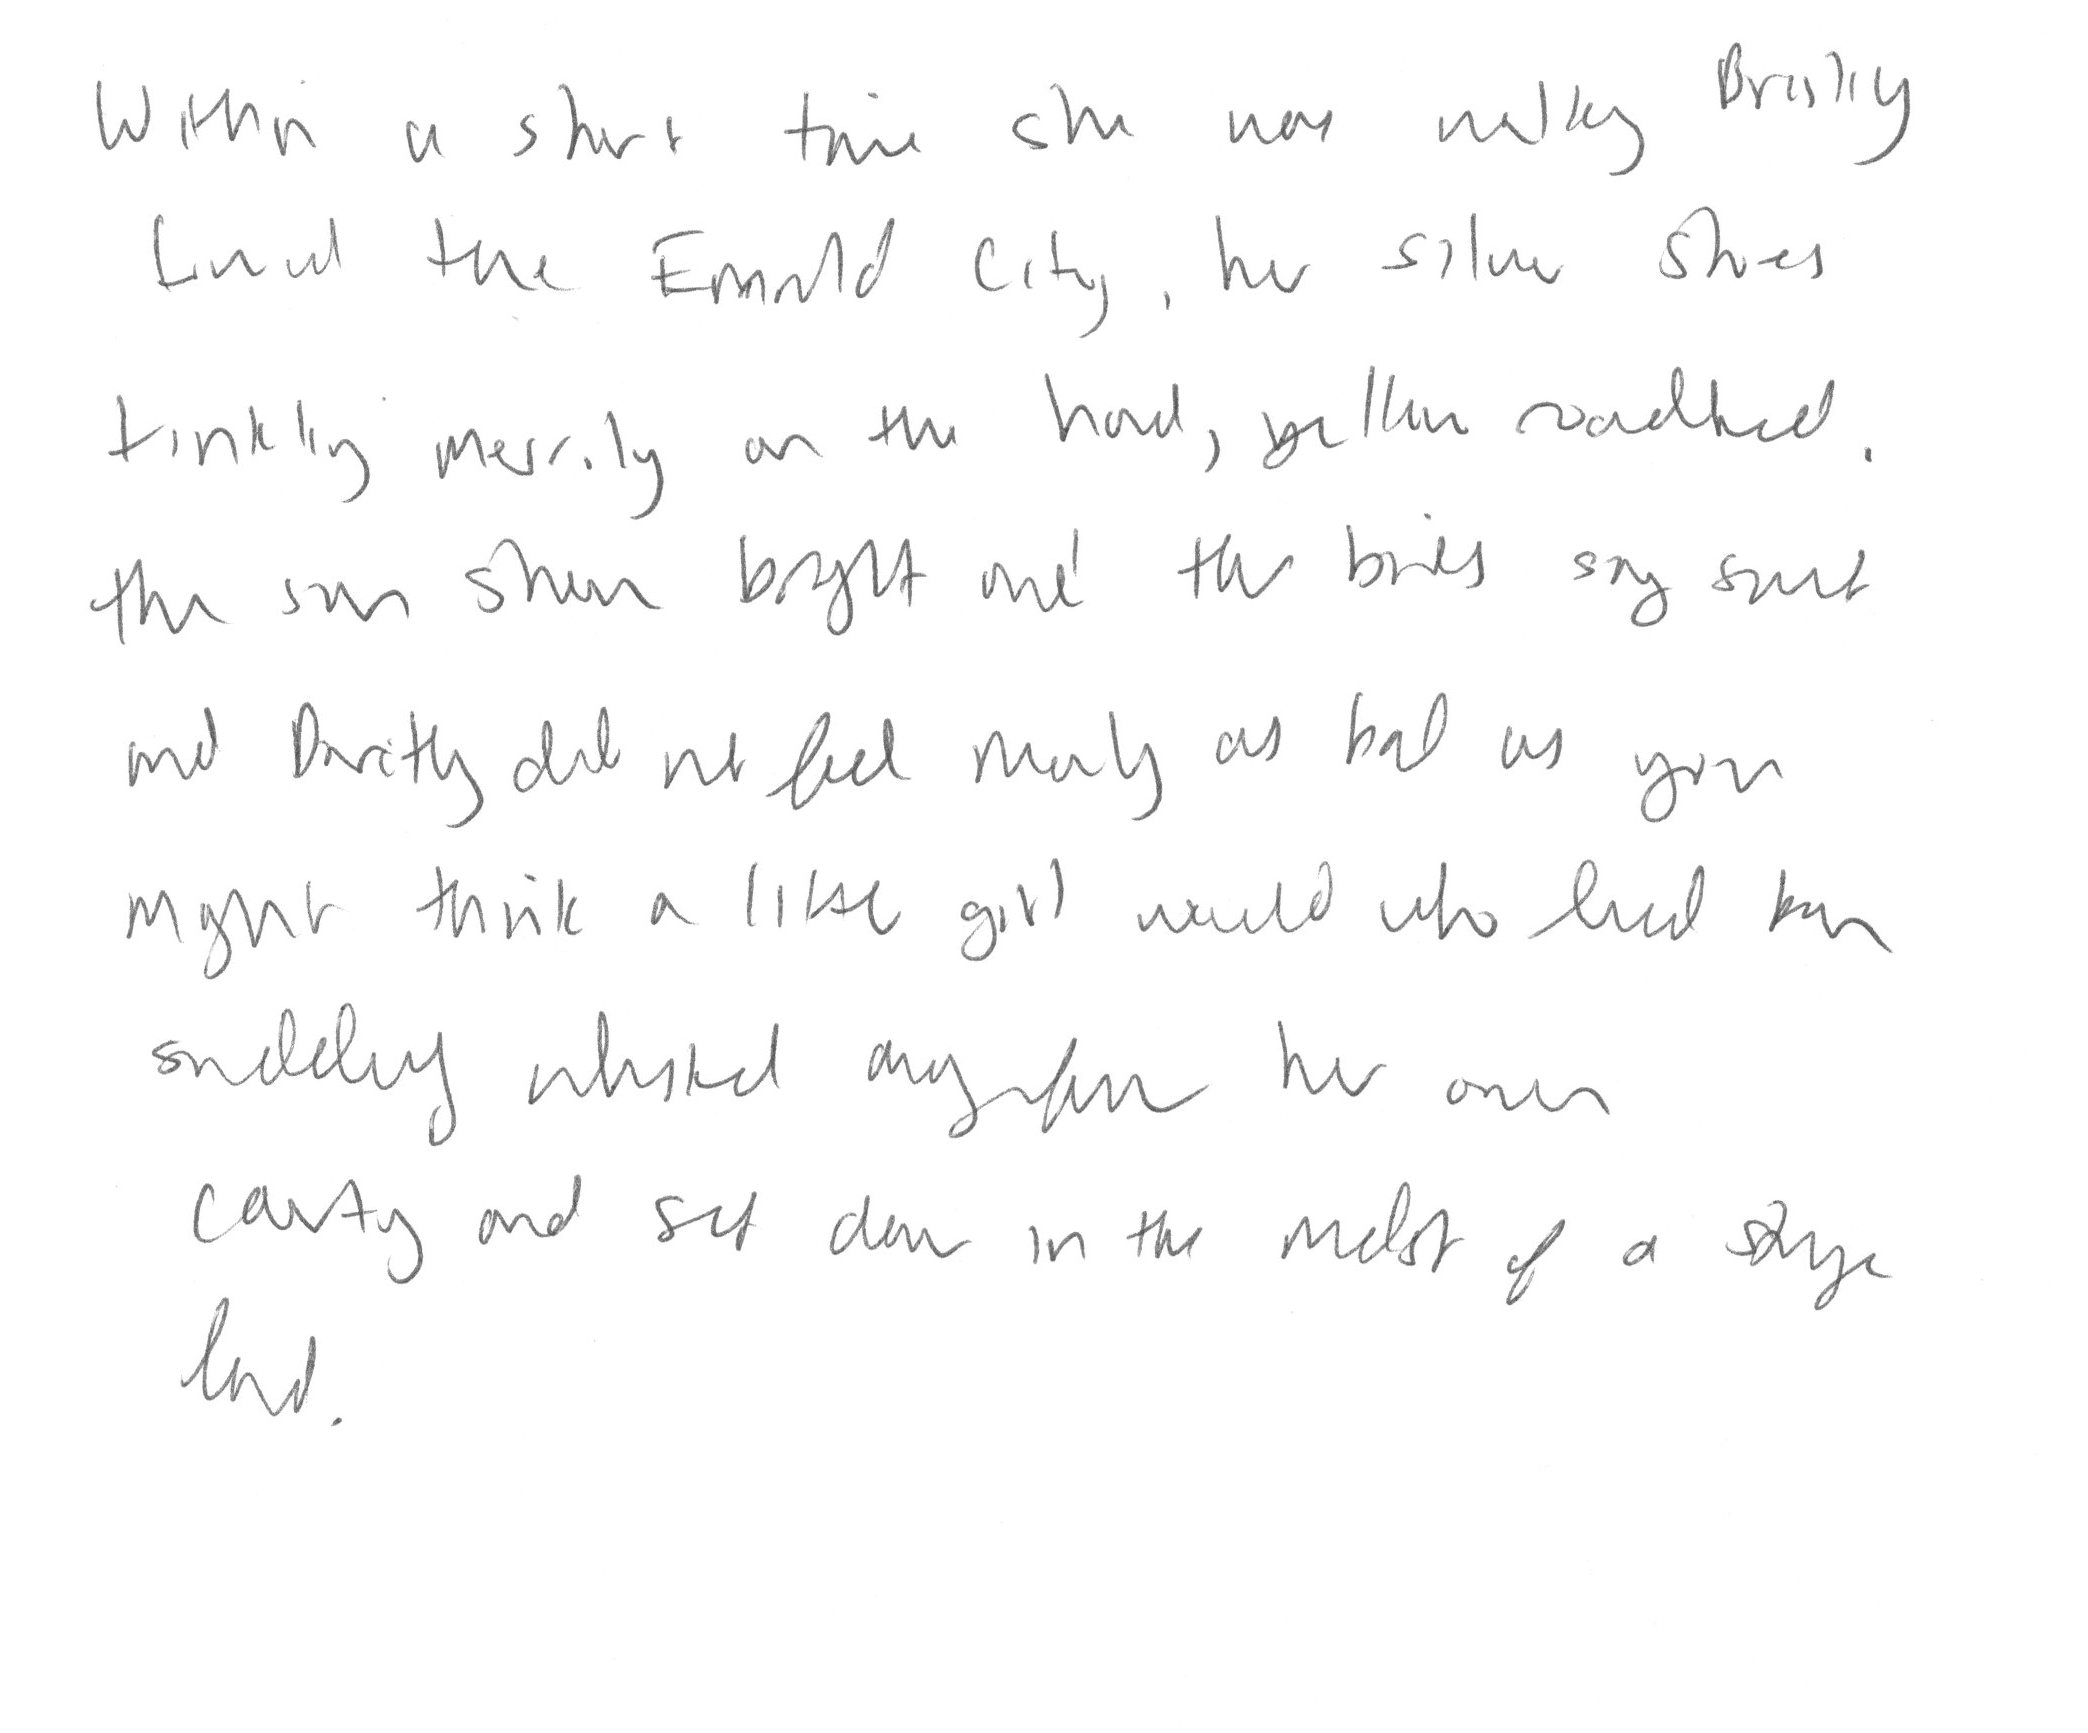 Within a short time she was walking Briskly
toward the Emerald City, her silver shoes
tinkling merrily on the hard, yellow roadbed.
the sun shone bright and the birds sang sweet
and Dorothy did not feel nearly as bad as you
might think a little girl would who had been
suddenly whisked away from her own
country and set down in the midst of a strange
land.